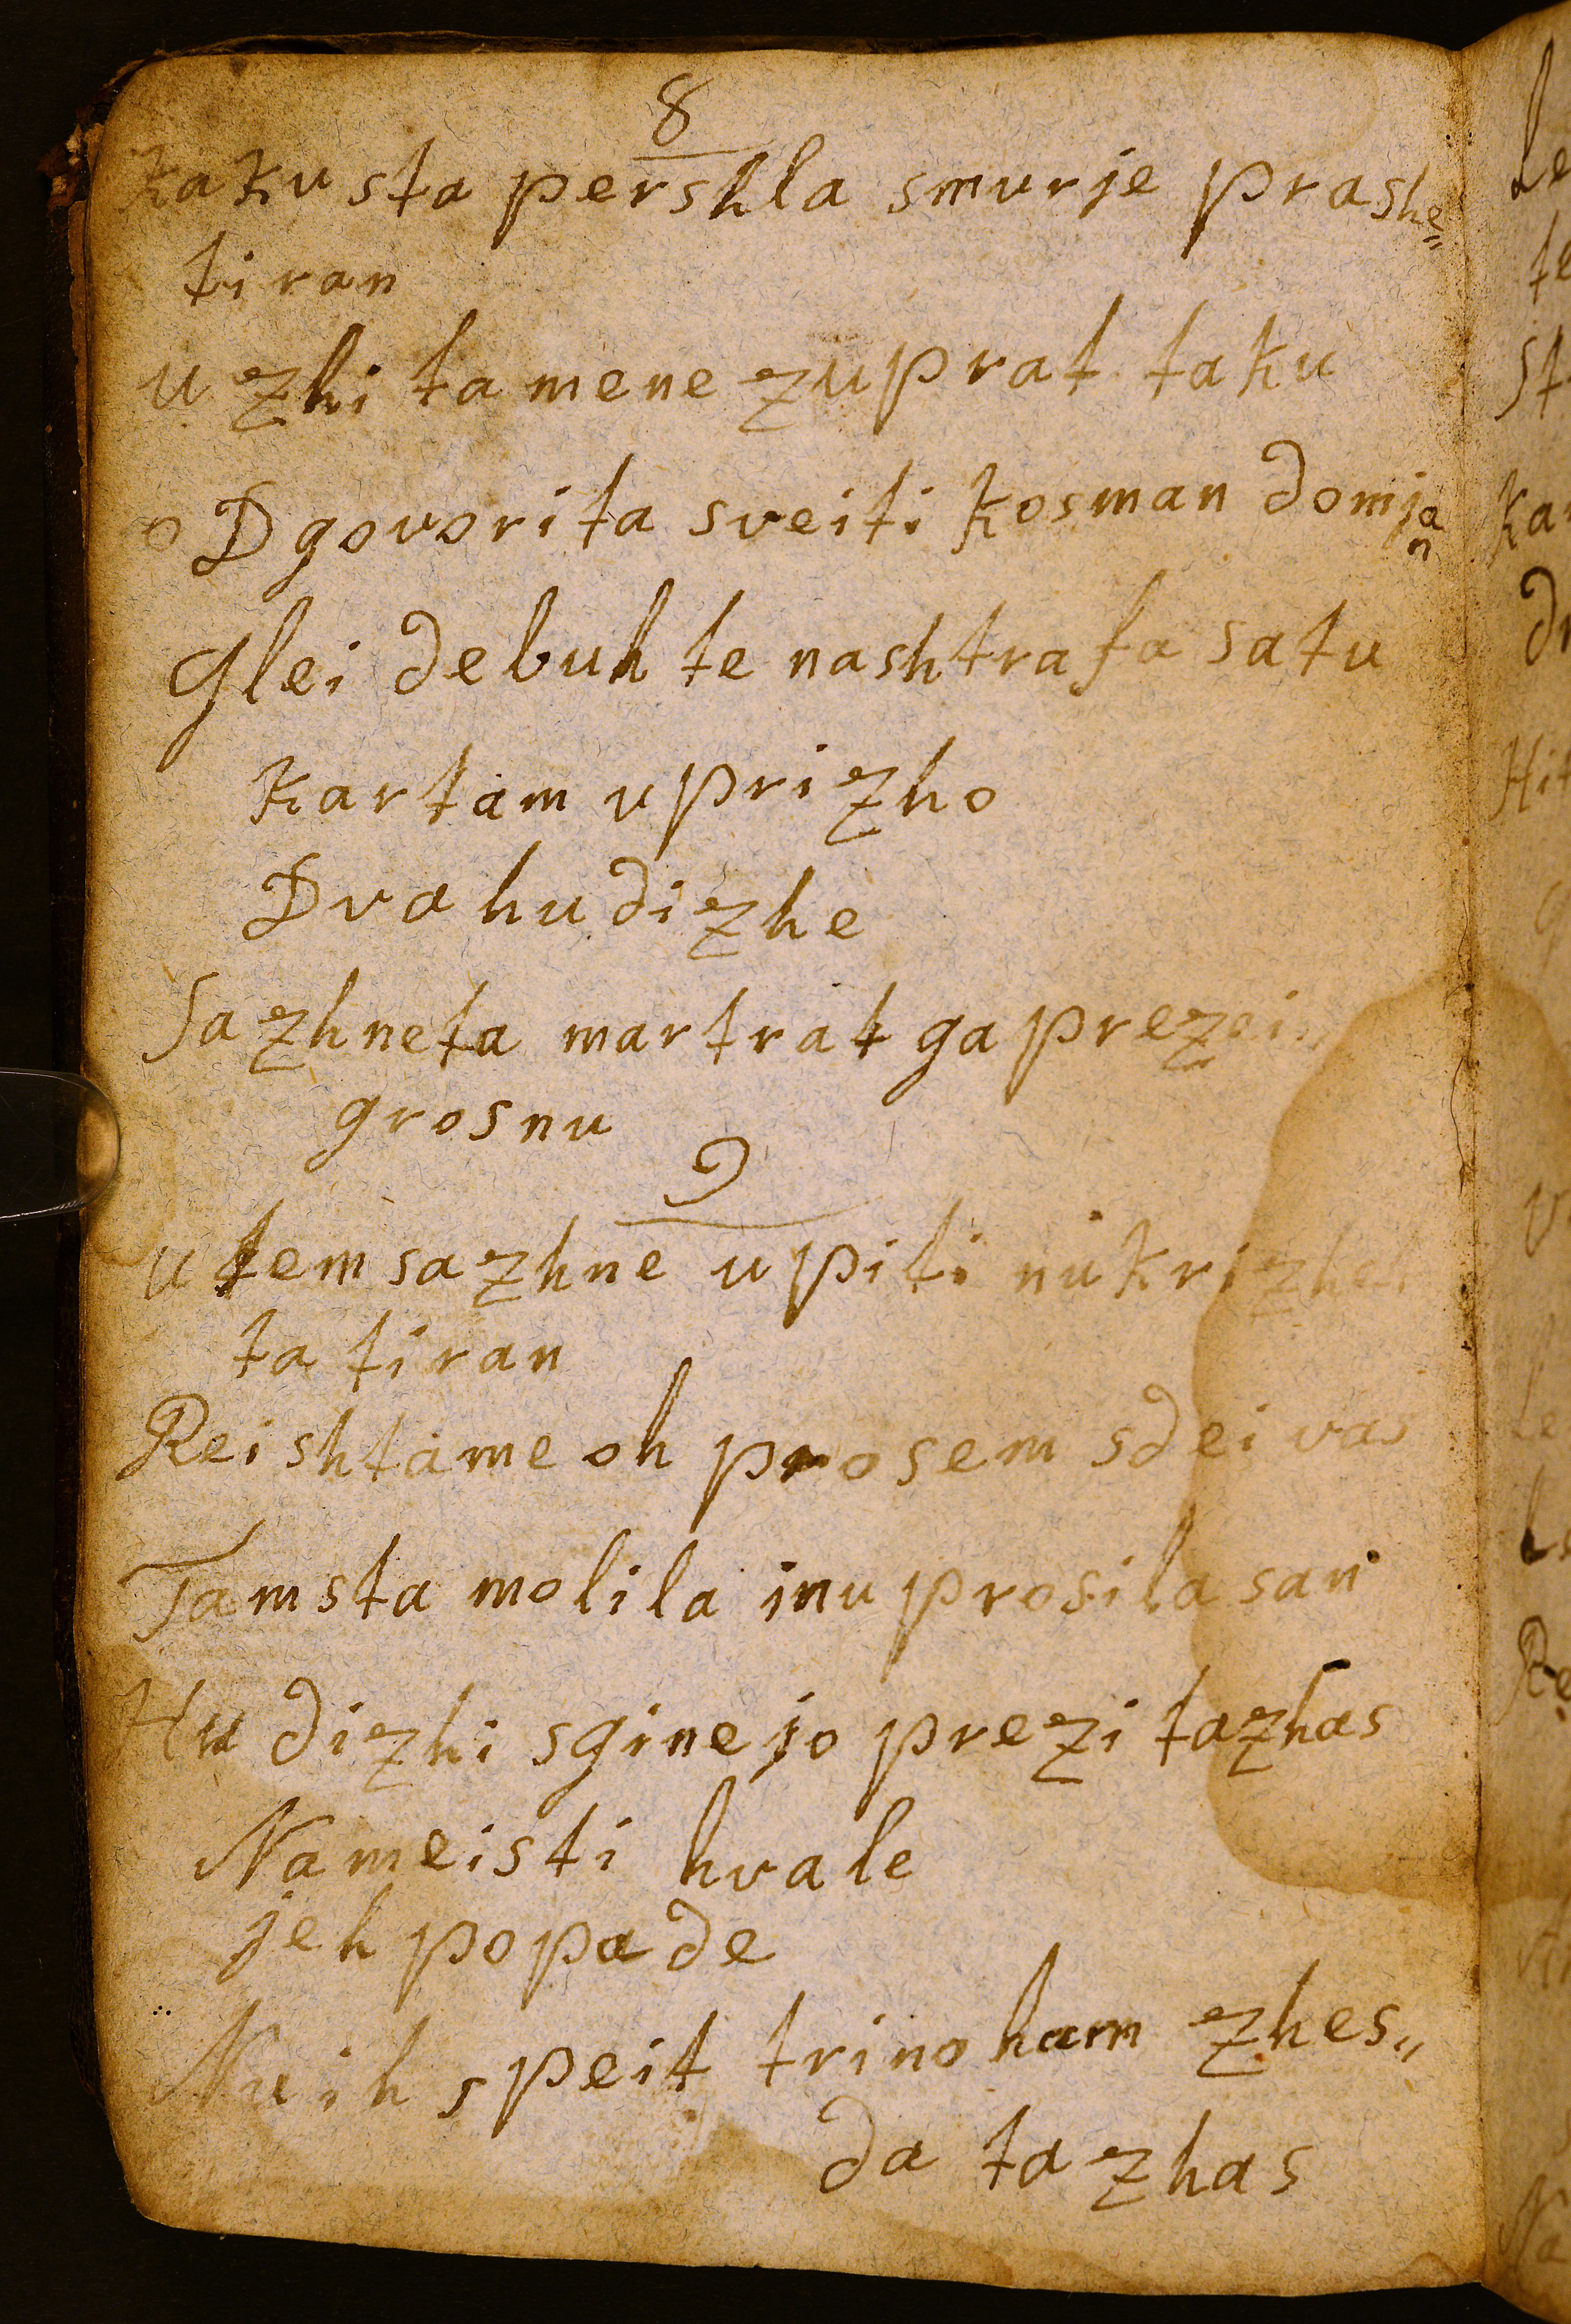 8
kaku sta pershla smurje prashe=
tiran
u zhi ta mene zuprat taku
oDgovorita sveiti kosman domjan
glei debuh te nashtrafa satu
kartam uprizho
Dva hudizhe
Sazhneta martrat ga
grosnu
9
utem sazhne upiti nu
ta tiran
Reishtame oh prosem sdei vas
Tamsta molila inu prosila san
Hudizhi sginejo prezi tazhas
Nameisti hvale
jeh popade
Nu ih speit trinoham zhes„
da tazhas